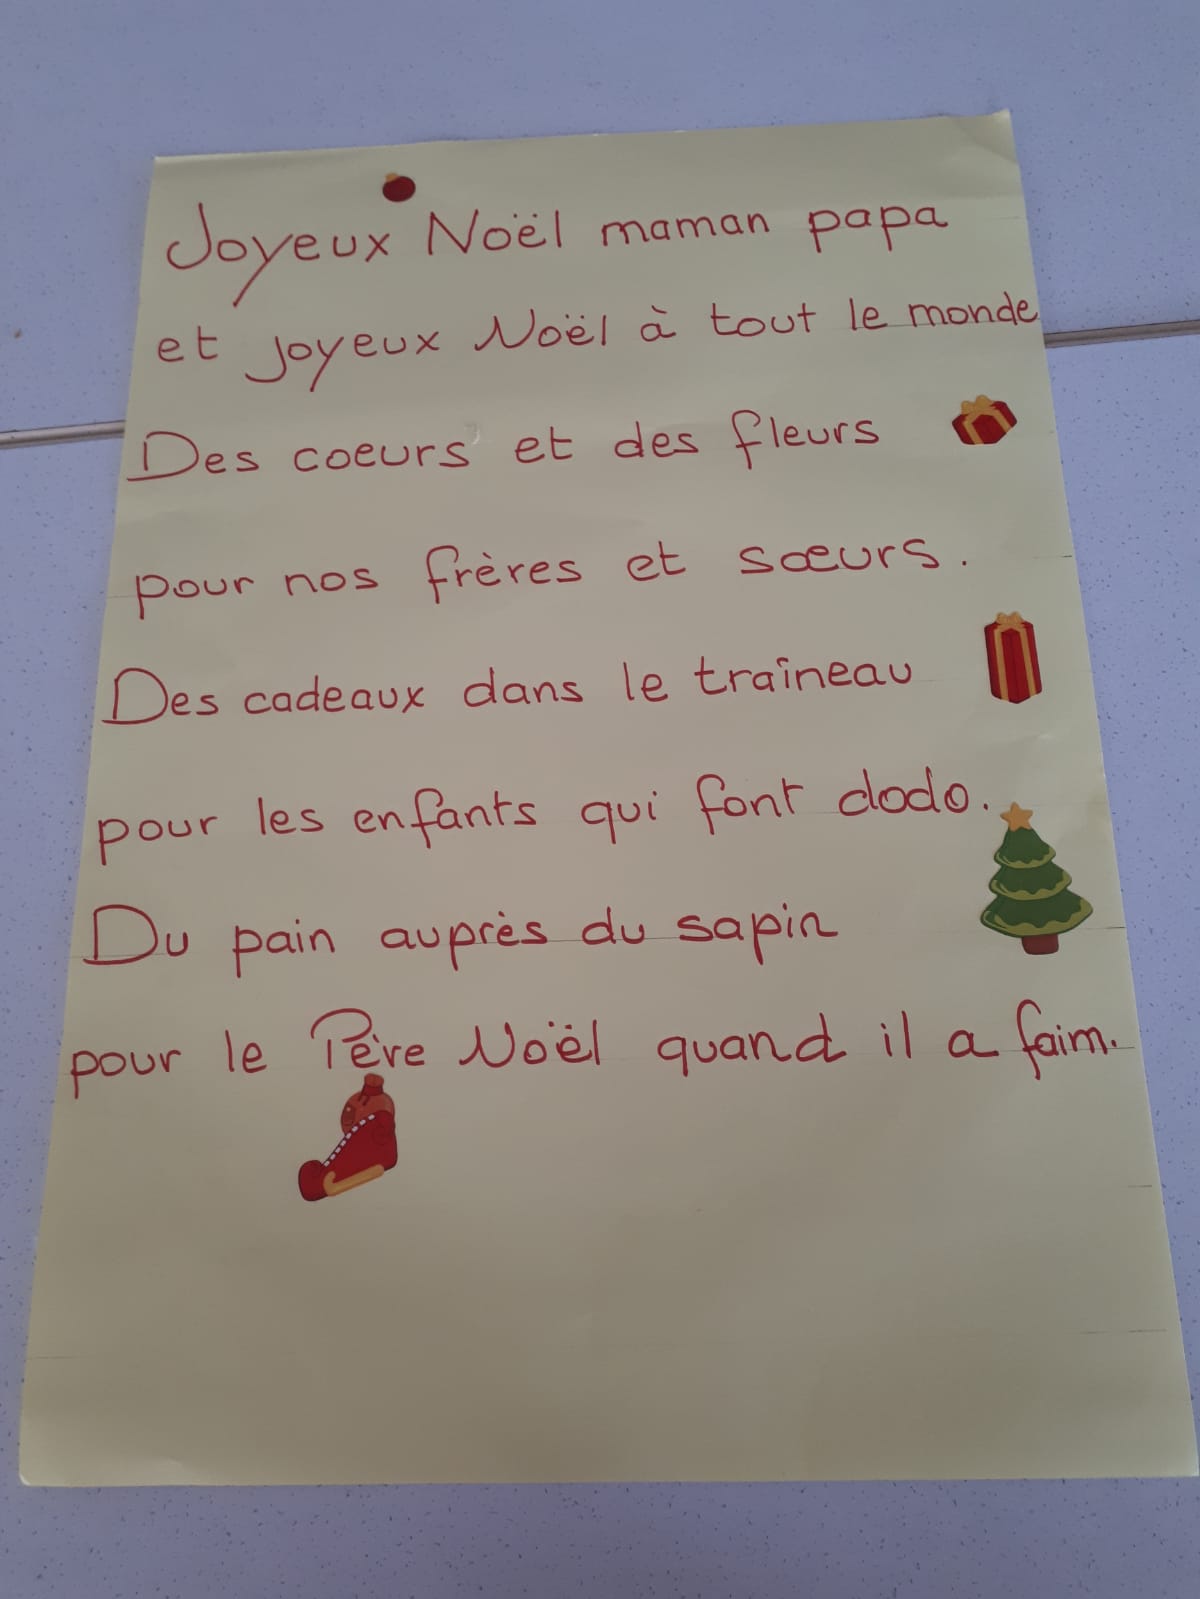 Joyeux Noël maman papa
et joyeux Noël à tout le monde
Des coeurs et des fleurs
pour nos frères et sœurs.
Des cadeaux dans le traîneau
pour les enfants qui font dodo.
Du pain auprès du sapin
pour le Père Noël quand il a faim.